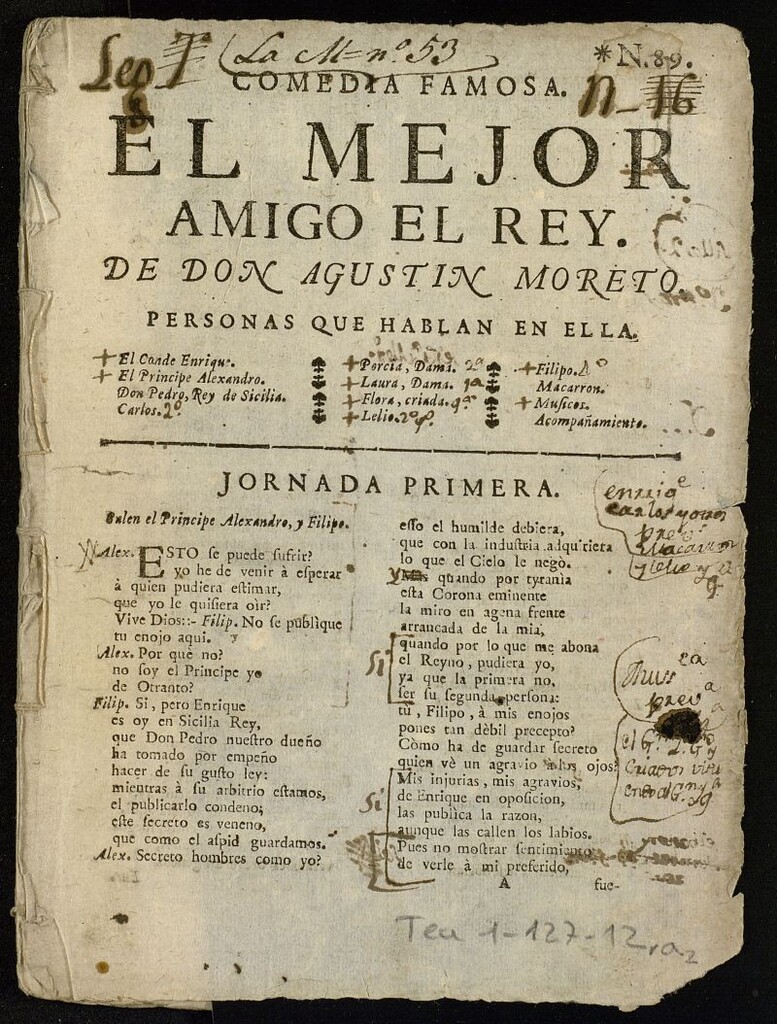 Leg 1
La M- nº 53
*N.89.
COMEDIA FAMOSA.
n-16
EL MEJOR
AMIGO EL REY.
DE DON AGUSTIN MORETO.
PERSONAS QUE HABLAN EN ELLA.
+ El Conde Enrique.
+ El Principe Alexandro.
Don Pedro, Rey de Sicilia.
Carlos. 2º
+ Porcia, Dama. 2ª
+ Laura, Dama. 1ª
+ Flora, criada. 4ª
+ Lelio. 2º
+ Filipo. 4º
Macarron.
+ Musicos.
Acompañamiento.
JORNADA PRIMERA.
Salen el Principe Alexandro, y Filipo.
Alex. ESTO se puede sufrir?
yo he de venir à esperar
à quien pudiera estimar,
que yo le quisiera oìr?
Vive Dios::- Filip. No se publique
tu enojo aqui.
Alex. Por què no?
no soy el Principe yo
de Otranto?
Filip. Si, pero Enrique
es oy en Sicilia Rey,
que Don Pedro nuestro dueño
ha tomado por empeño
hacer de su gusto ley:
mientras à su arbitrio estamos,
el publicarlo condeno;
este secreto es veneno,
que como el aspid guardamos.
Alex. Secreto hombres como yo?
esso el humilde debiera,
que con la industria adquiriera
lo que el Cielo le negò.
y quando por tyranìa
esta Corona eminente
la miro en agena frente
arrancada de la mia,
quando por lo que me abona
el Reyno, pudiera yo,
Si
ya que la primera no,
ser su segunda persona:
tù, Filipo, à mis enojos
pones tan dèbil precepto?
Còmo ha de guardar secreto
quien vè un agravio à los ojos?
Mis injurias, mis agravios,
Si
de Enrique en oposicion,
las publica la razon,
aunque las callen los labios.
Pues no mostrar sentimiento
de verle à mi preferido,
A
fue-
enriqe
carlos
prevs
Macarron
y lelio
Tea 1-127-12,a2